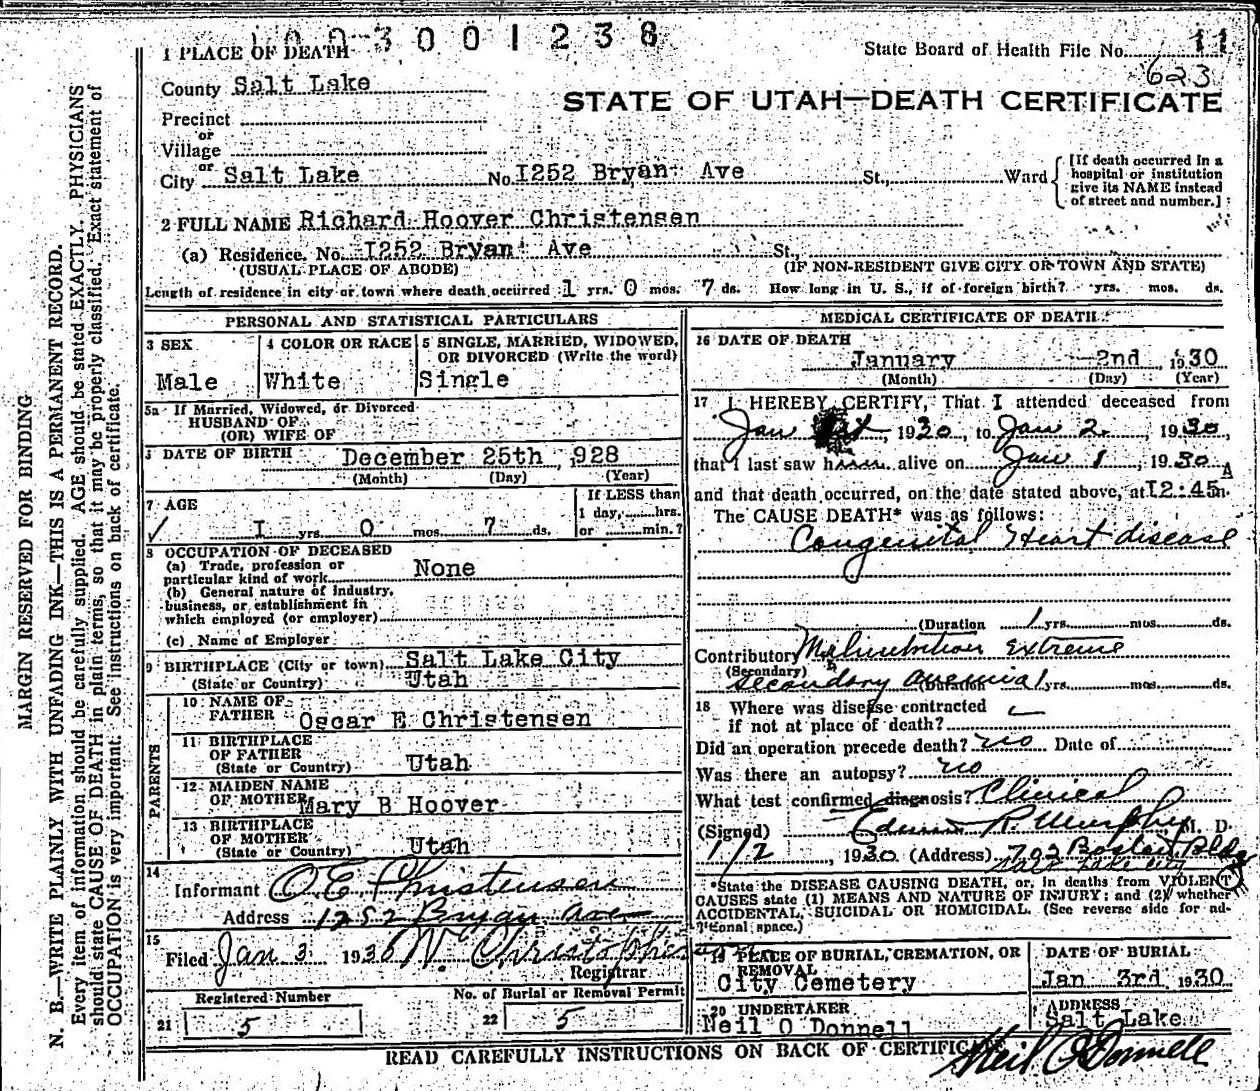 3001238
1 PLACE OF DEATH
State Board of Health File No. 11
623
County Salt Lake
STATE OF UTAH—DEATH CERTIFICATE
Precinct
or
Village
or
City Salt Lake No. 1252 Bryan Ave St., Ward
[If death occurred in a
hospital or institution
give its NAME instead
of street and number.]
2 FULL NAME Richard Hoover Christensen
(a) Residence. No. 1252 Bryan Ave St.,
(USUAL PLACE OF ABODE) (IF NON-RESIDENT GIVE CITY OR TOWN AND STATE)
Length of residence in city or town where death occurred 1 yrs. 0 mos. 7 ds. How long in U. S., if of foreign birth? yrs. mos. ds.
PERSONAL AND STATISTICAL PARTICULARS
3 SEX
Male
4 COLOR OR RACE
White
5 SINGLE, MARRIED, WIDOWED,
OR DIVORCED (Write the word)
Single
5a If Married, Widowed, or Divorced
HUSBAND OF
(OR) WIFE OF
DATE OF BIRTH December 25th 1928
(Month) (Day) (Year)
7 AGE
1 yrs. 0 mos. 7 ds.
If LESS than
1 day, hrs.
or min.?
8 OCCUPATION OF DECEASED
(a) Trade, profession or
particular kind of work None
(b) General nature of industry,
business, or establishment in
which employed (or employer)
(c) Name of Employer
9 BIRTHPLACE (City or town) Salt Lake City
(State or Country) Utah
PARENTS
10 NAME OF
FATHER Oscar E Christensen
11 BIRTHPLACE
OF FATHER
(State or Country) Utah
12 MAIDEN NAME
OF MOTHER Mary B Hoover
13 BIRTHPLACE
OF MOTHER
(State or Country) Utah
14
Informant O E Christensen
Address 1252 Bryan Ave
15
Filed Jan 3 1930 W. Christopherson
Registrar
Registered Number
21 5
No. of Burial or Removal Permit
22 5
MEDICAL CERTIFICATE OF DEATH
16 DATE OF DEATH
January 2nd, 1930
(Month) (Day) (Year)
17 I HEREBY CERTIFY, That I attended deceased from
Jan , 1930, to Jan 2, 1930
that I last saw him alive on Jan 1, 1930
and that death occurred, on the date stated above, at 12:45 A m.
The CAUSE DEATH* was as follows:
Congenital Heart disease
(Duration 1 yrs. mos. ds.
Contributory Malnutrition Extreme
(Secondary) secondary anemia
(Duration) 1 yrs. mos. ds.
18 Where was disease contracted
if not at place of death?
Did an operation precede death? no Date of
Was there an autopsy? no
What test confirmed diagnosis? Clinical
(Signed) Edwin R. Murphy M. D.
1/2, 1930 (Address) 702 Boston Bldg
Salt Lake City
*State the DISEASE CAUSING DEATH, or, in deaths from VIOLENT
CAUSES state (1) MEANS AND NATURE OF INJURY; and (2) whether
ACCIDENTAL, SUICIDAL OR HOMICIDAL. (See reverse side for ad-
ditional space.)
19 PLACE OF BURIAL, CREMATION, OR
REMOVAL
City Cemetery
DATE OF BURIAL
Jan 3rd 1930
20 UNDERTAKER
Neil O Donnell
ADDRESS
Salt Lake
READ CAREFULLY INSTRUCTIONS ON BACK OF CERTIFICATE
Neil O'Donnell
MARGIN RESERVED FOR BINDING
N. B.—WRITE PLAINLY WITH UNFADING INK—THIS IS A PERMANENT RECORD.
Every item of information should be carefully supplied. AGE should be stated EXACTLY. PHYSICIANS
should state CAUSE OF DEATH in plain terms, so that it may be properly classified. Exact statement of
OCCUPATION is very important. See instructions on back of certificate.